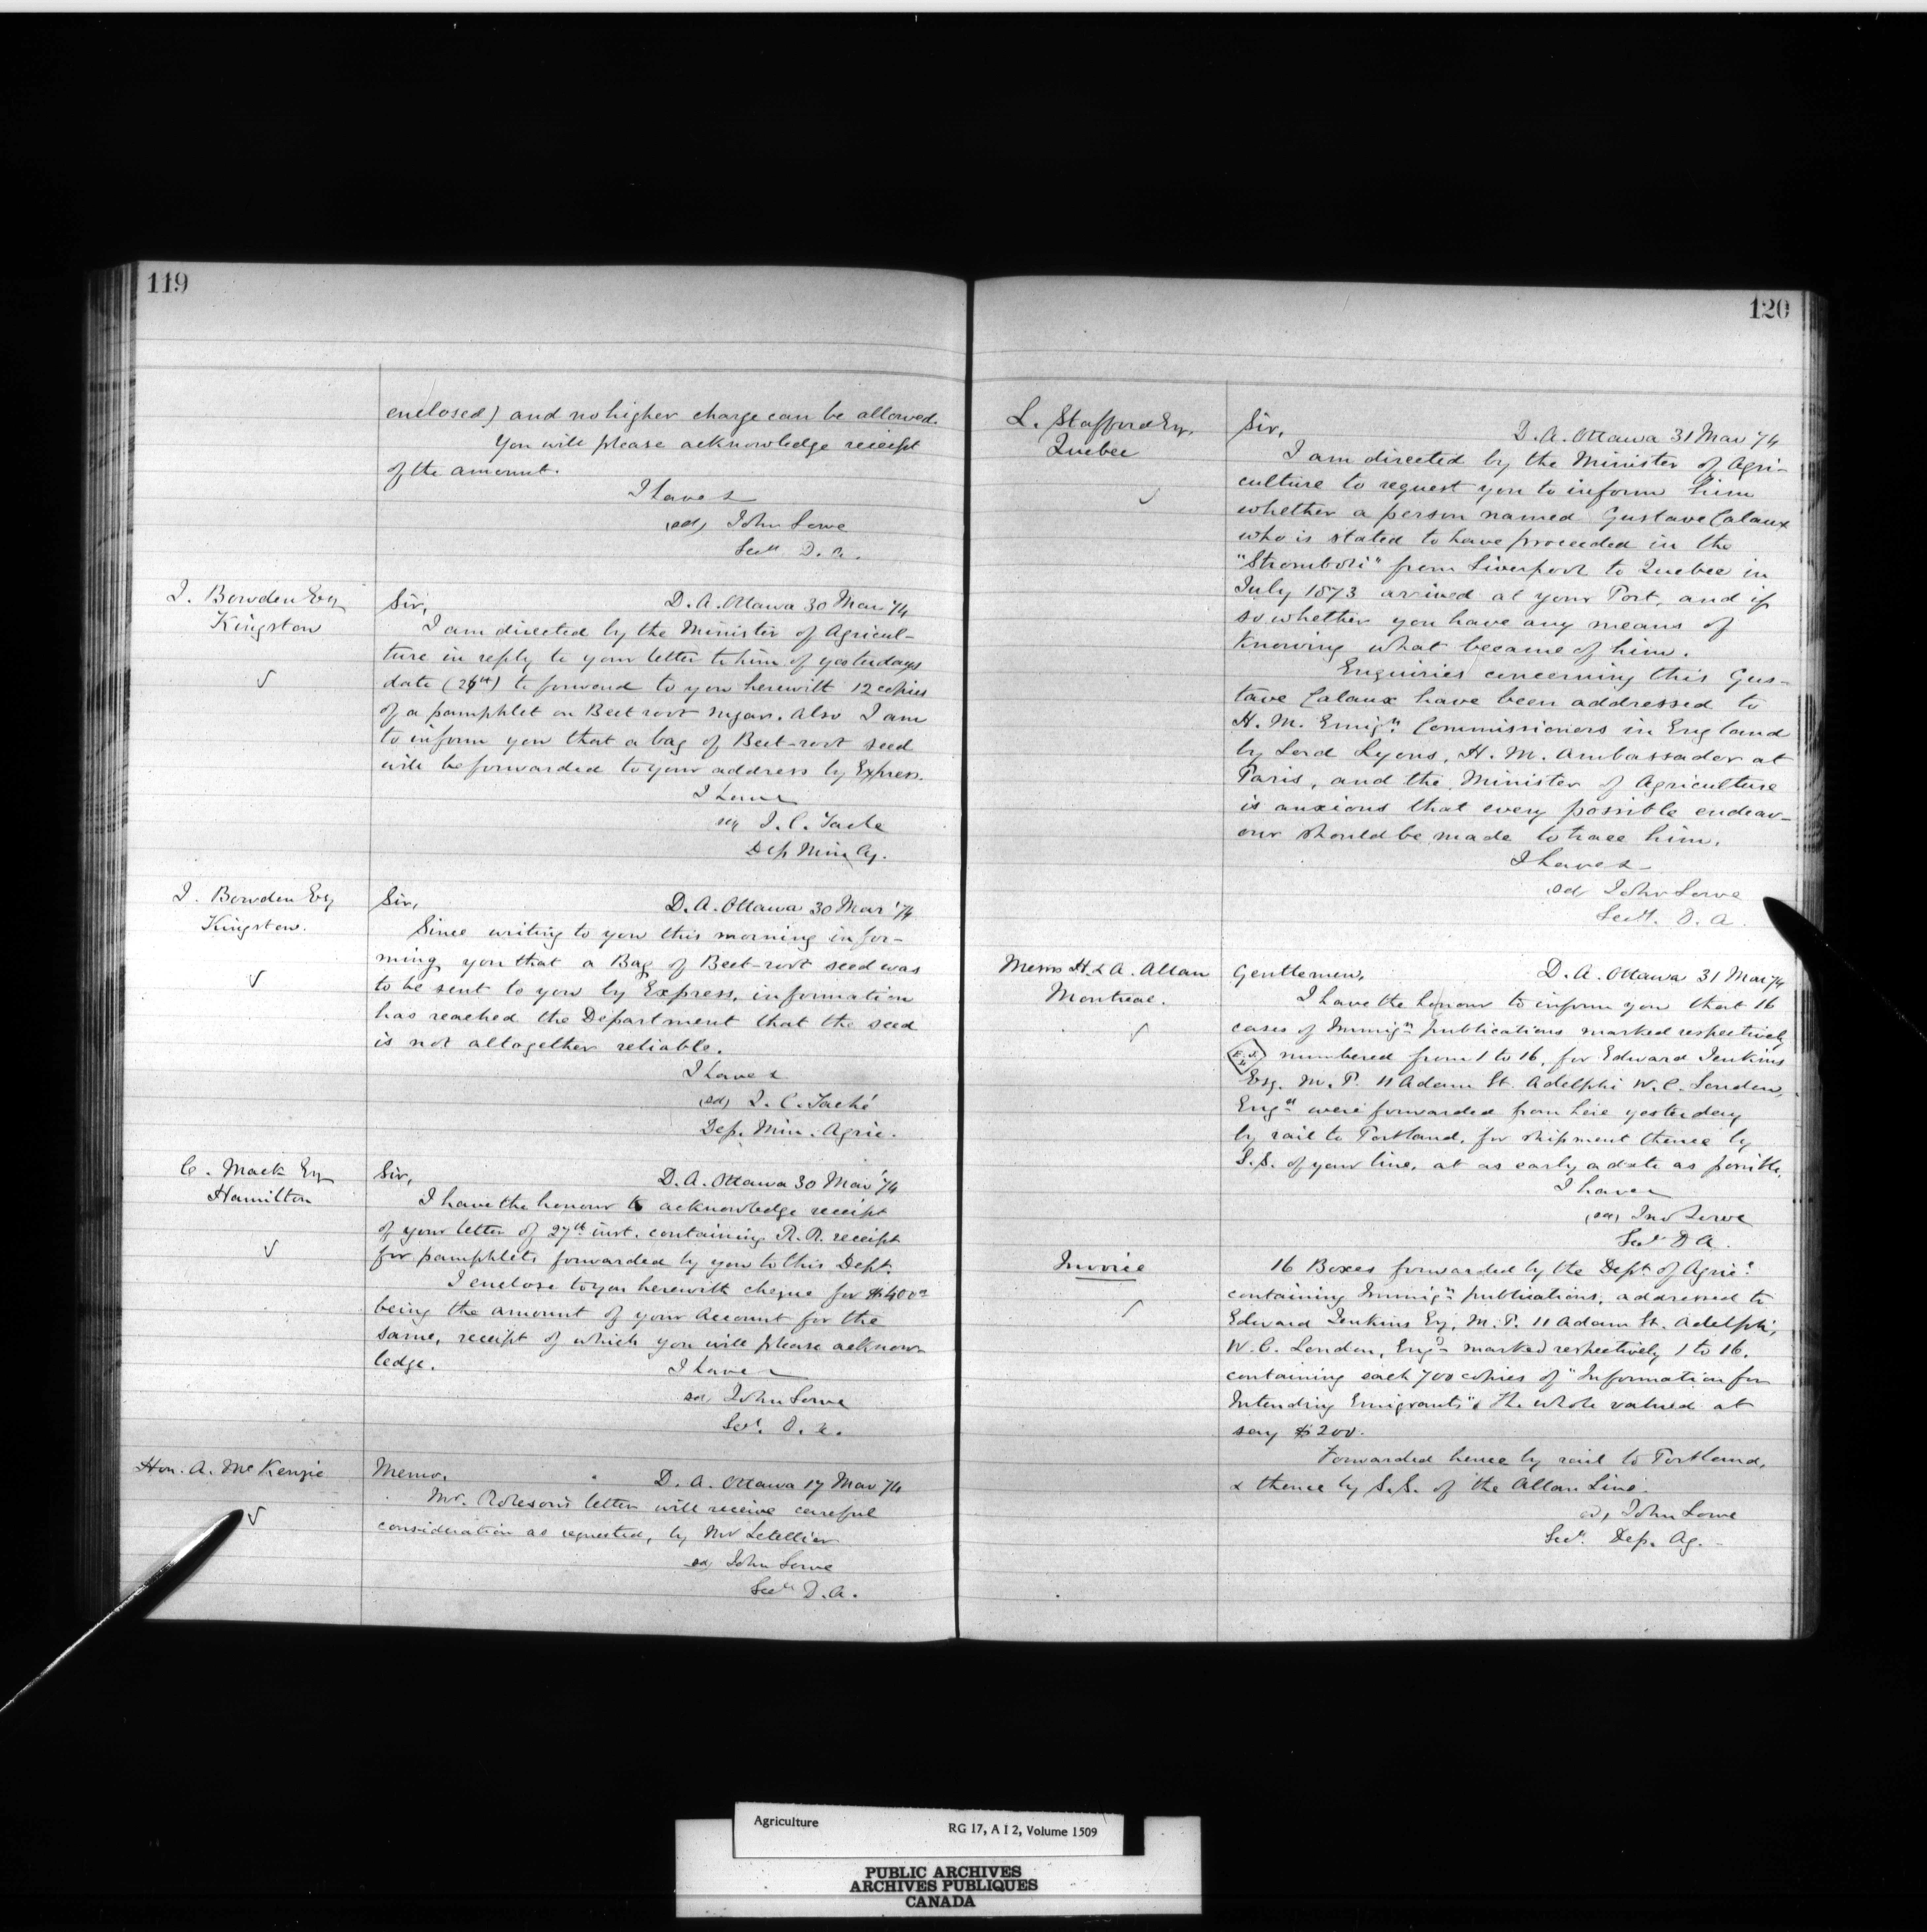 119
enclosed) and no higher charge can be allowed.
You will please acknowledge receipt
of the amount.
I have &
(sd) John Lowe
Secy D. A.
J. Bowden Esq
Kingston
Sir, D. A. Ottawa 30 Mar '74
I am directed by the Minister of Agricul-
ture in reply to your letter to him of yesterdays
date (26th) to forward to you herewith 12 copies
of a pamphlet on Beet root sugar. Also I am
to inform you that a bag of Beet-root seed
will be forwarded to your address by Express.
I have
sg J. C. Tache
Dep Min Ag.
J. Bowden Esq
Kingston.
Sir, D. A. Ottawa 30 Mar '74
Since writing to you this morning infor-
ming you that a Bag of Beet-root seed was
to be sent to you by Express, information
has reached the Department that the seed
is not altogether reliable.
I have &
(sd) J. C. Taché
Dep. Min. Agric.
C. Mack Esq
Hamilton
Sir, D. A. Ottawa 30 Mar '74
I have the honour to acknowledge receipt
of your letter of 27th inst. containing R. R. receipt
for pamphlets forwarded by you to this Dept.
I enclose to you herewith cheque for
being the amount of your Account for the
same, receipt of which you will please acknow
ledge.
I have
sd, John Lowe
Secy. D. A.
Hon. A. McKenzie
Memo. D. A. Ottawa 17 Mar '74
Mr. letter will receive careful
consideration as requested, by Mr Letellier
sd, John Lowe
Secy D. A.
120
L. Stafford Esq.
Quebec
Sir, D. A. Ottawa 31 Mar '74
I am directed by the Minister of Agri-
culture to request you to inform him
whether a person named Gustave Calaux
who is stated to have proceeded in the
"Stromboli" from Liverpool to Quebec in
July 1873 arrived at your Port, and if
so whether you have any means of
Knowing what became of him.
Enquiries concerning this Gus-
tave Calaux have been addressed to
H. M. Emign Commissioners in England
by Lord Lyons, H. M. Ambassador at
Paris, and the Minister of Agriculture
is anxious that every possible endeav-
our should be made to trace him.
I have &
(sd) John Lowe
Secy. D. A.
Messrs H. & A. Allan
Montreal.
Gentlemen, D. A. Ottawa 31 Mar '74
I have the honour to inform you that 16
cases of Immign publications marked respectively
E. J. numbered from 1 to 16, for Edward Jenkins
Esq. M. P. 11 Adam St. Adelphi W. C. London,
Engd were forwarded from here yesterday
by rail to Portland, for shipment thence by
S. S. of your line, at as early a date as possible.
I have
(sd) Jno Lowe
Secy D A.
Invoice
16 Boxes forwarded by the Dept of Agric.
containing Immign publications, addressed to
Edward Jenkins Esq. M. P. 11 Adam St. Adelphi,
W. C. London, Engd marked respectively 1 to 16.
containing each 700 copies of "Information for
Intending Emigrants". The whole valued at
say $200.
Forwarded hence by rail to Portland,
& thence by S. S. of the Allan Line.
sd, John Lowe
Secy. Dep. Ag.
Agriculture RG 17, A I 2, Volume 1509
PUBLIC ARCHIVES
ARCHIVES PUBLIQUES
CANADA